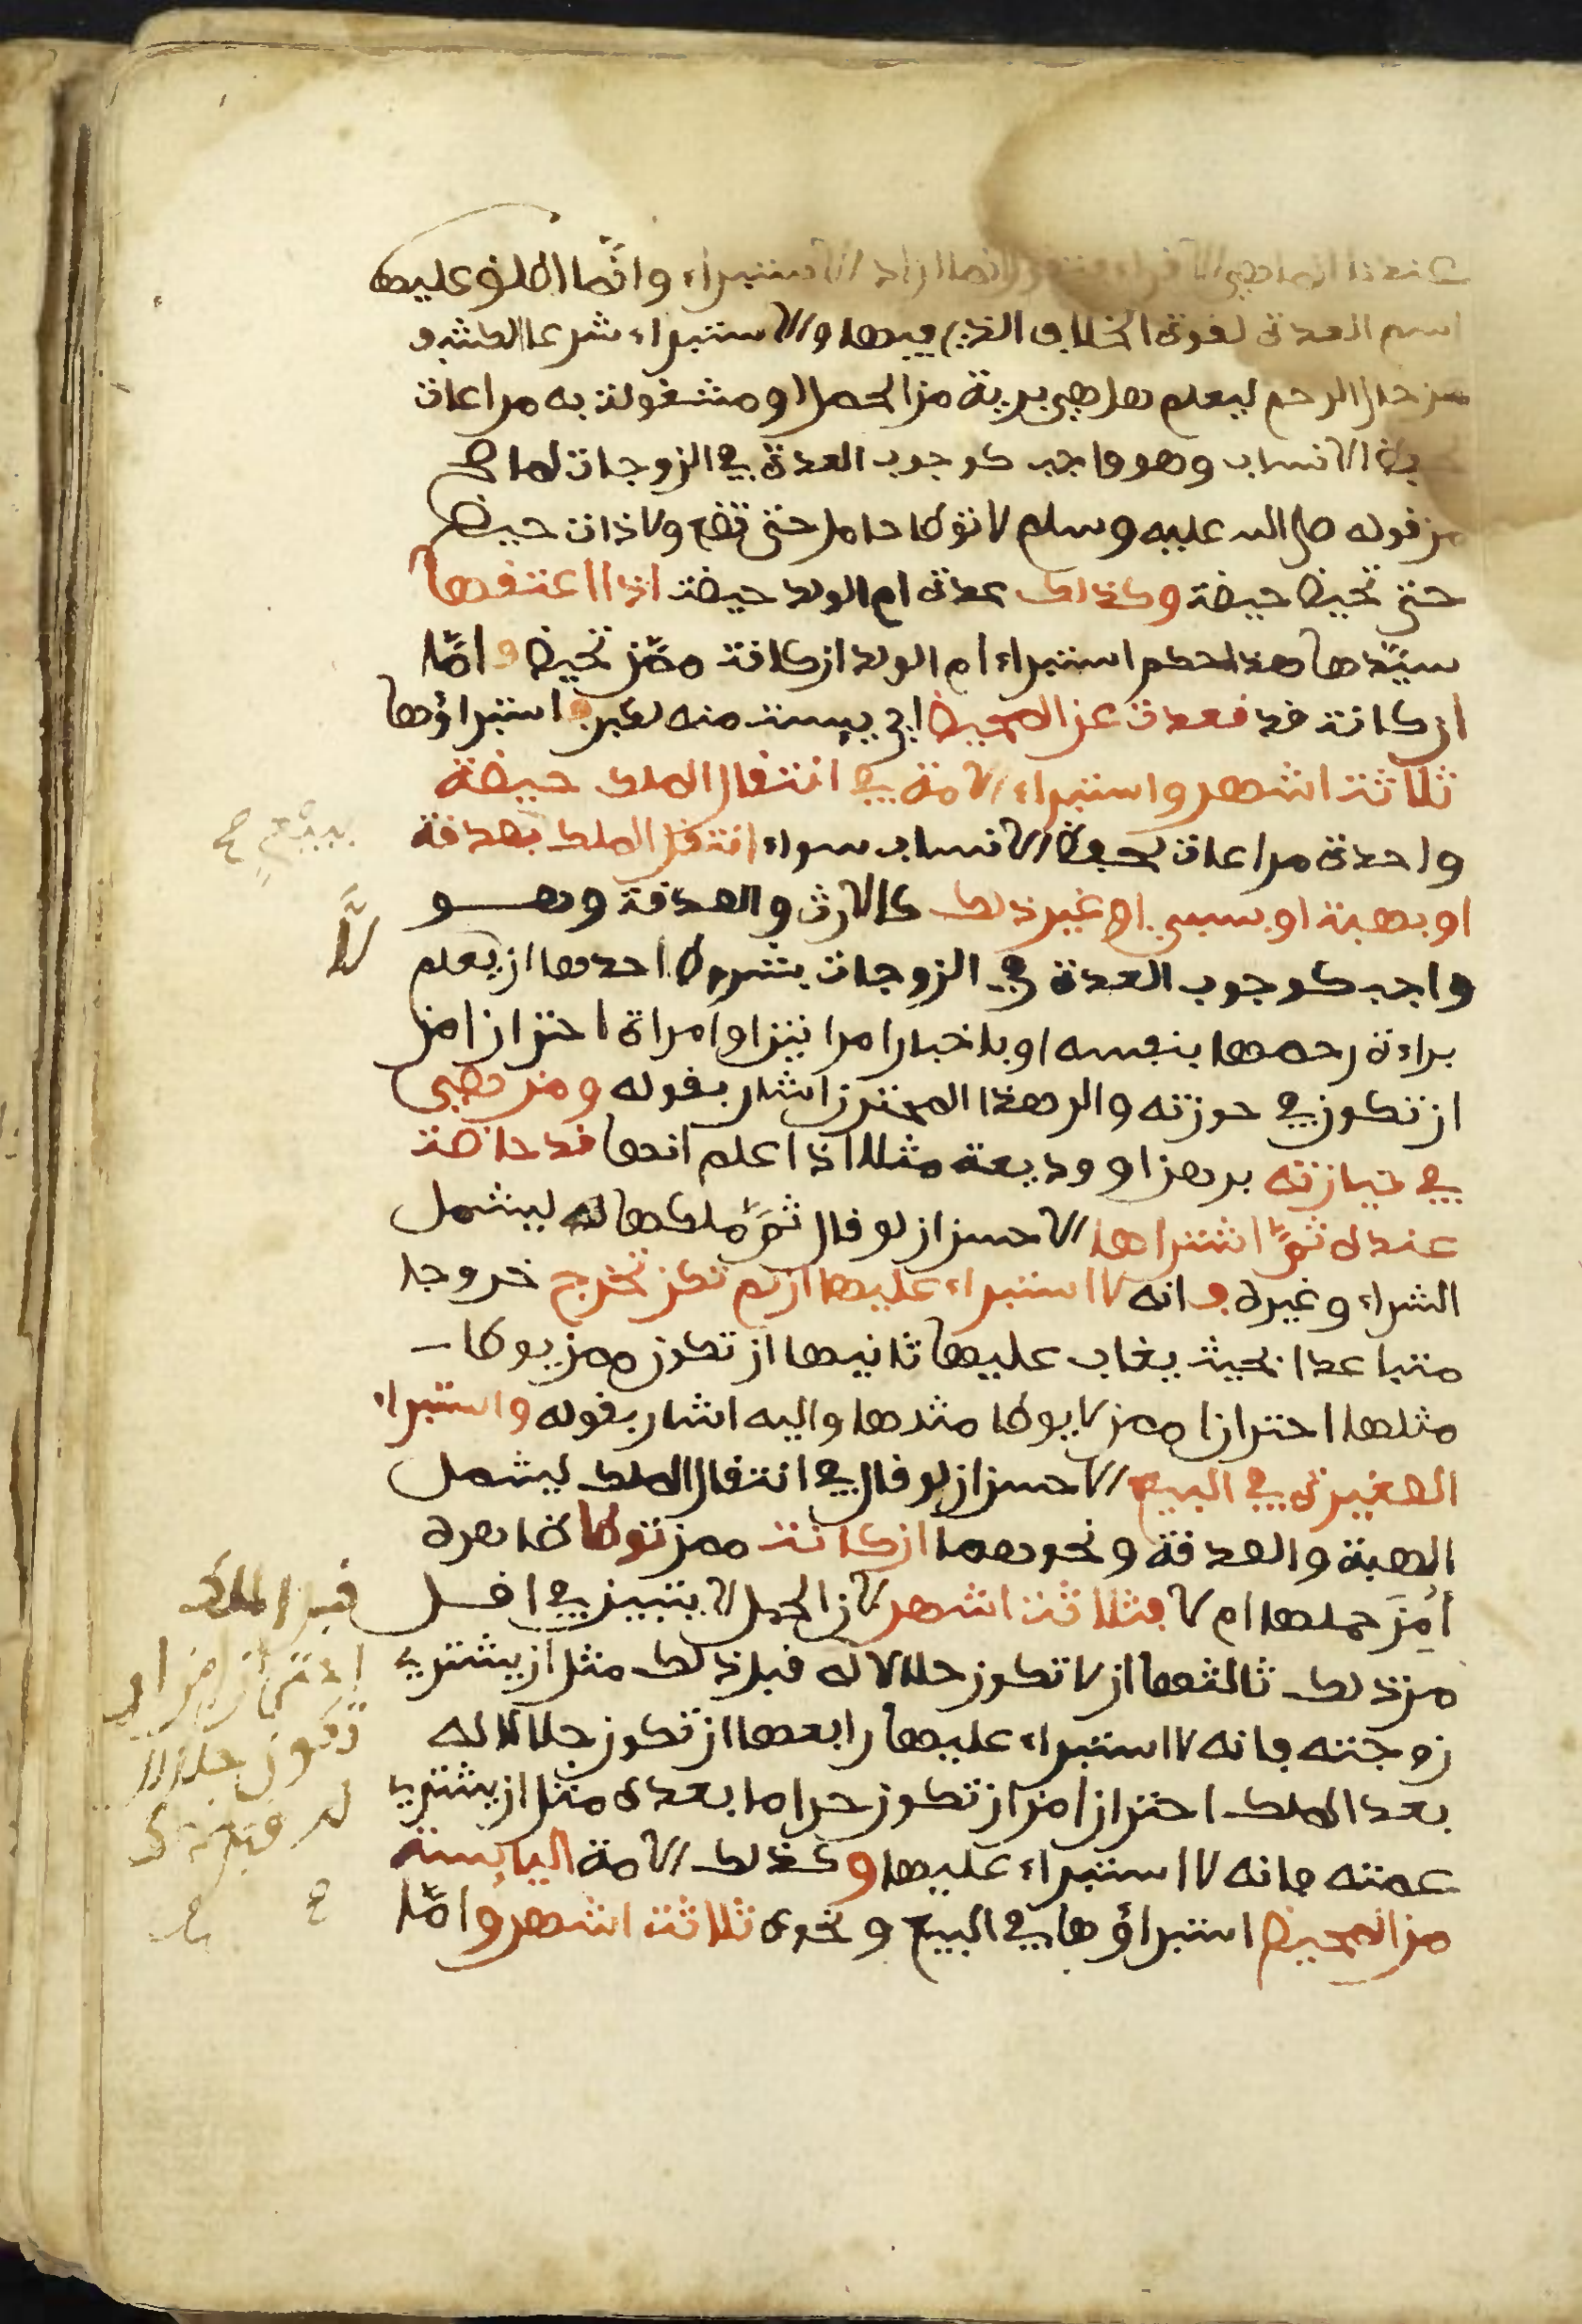 عندنا انما هي الاقراء فتعين انما اراد الاستبراء وانما اطلق عليها
اسم العدة لقوة الخلاف الذي فيها والاستبراء شرعا الكشف
عن حال الرحم ليعلم هل هي برية من الحمل او مشغولة به مراعات
لحفظ الانساب وهو واجب كوجوب العدة في الزوجات لما صح
من قوله صلى الله عليه وسلم لا توطا حامل حتى تضع ولا ذات حيض
حتى تحيض حيضة وكذلك عدة ام الولد حيضة اذا اعتقها
سيدها هذا حكم استبراء ام الولد ان كانت ممن تحيض واما
ان كانت قد قعدت عن المحيض اي ييست منه لكبر فاستبراؤها
ثلاثة اشهر واستبراء الامة في انتقال الملك حيضة
واحدة مراعات لحفظ الانساب سواء انتقل الملك بصدقة
ببيع صح
او بهبة او بسبي او غير ذلك كالارث والصدقة وهو
لا
واجب كوجوب العدة في الزوجات بشروط احدها ان يعلم
براءة رحمها بنفسه او باخبار امراتين او امراة احترازا من
ان تكون في حوزته والى هذا المحترز اشار بقوله ومن هي
في حيازته برهن او وديعة مثلا اذا علم انها قد حاضت
عنده ثم اشتراها الاحسن ان لو قال ثم ملكها له ليشمل
الشراء وغيره فانه لا استبراء عليها ان لم تكن تخرج خروجا
متباعدا بحيث يغاب عليها ثانيها ان تكون ممن يوطا
مثلها احترازا ممن لا يوطا مثلها واليه اشار بقوله واستبراء
الصغيرة في البيع الاحسن ان لو قال في انتقال الملك ليشمل
الهبة والصدقة ونحوهما ان كانت ممن توطا ظاهره
أمن حملها ام لا بثلاثة اشهر لان الحمل لا يتبين في اقل
من ذلك ثالثها ان لا تكون حلالا له قبل ذلك مثل ان يشتري
زوجته فانه لا استبراء عليها رابعها ان تكون حلالا له
بعد الملك احترازا من ان تكون حراما بعده مثل ان يشتري
عمته فانه لا استبراء عليها وكذلك الامة اليايسة
من المحيض استبراؤها في البيع ونحوه ثلاثة اشهر واما
قبل الملك
احترازا من ان
تكون حلالا
له قبل ذلك
صح